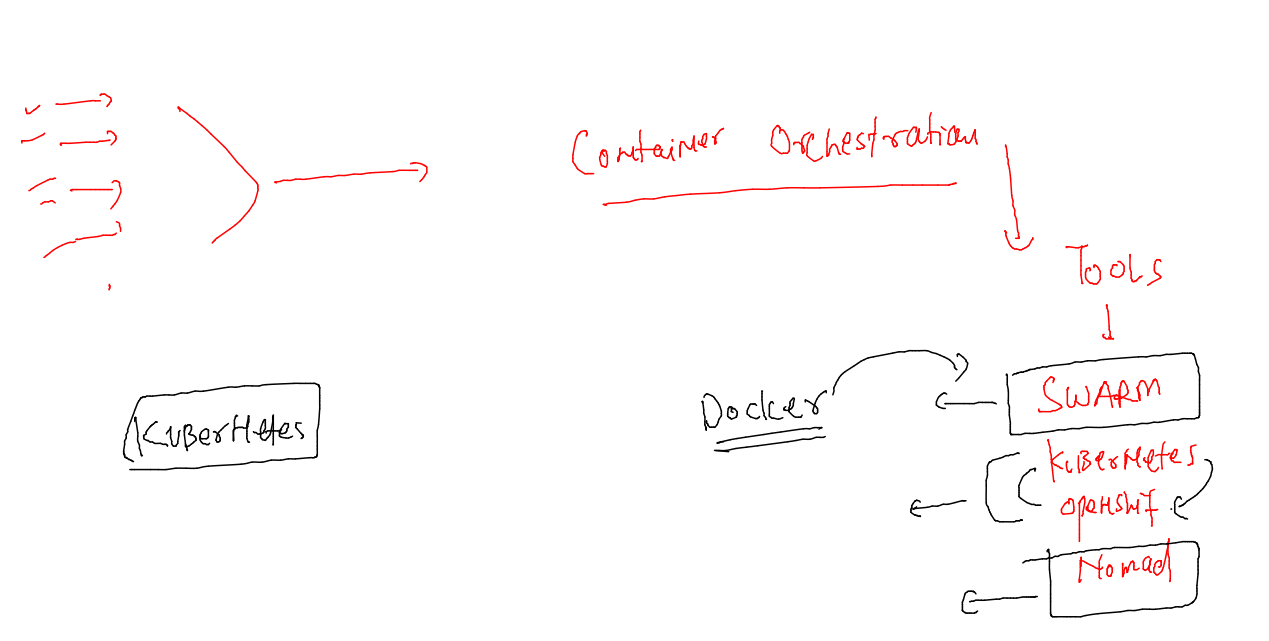 Container Orchestration
Tools
Docker
SWARM
Kubernetes
Kubernetes
openshif
Nomad